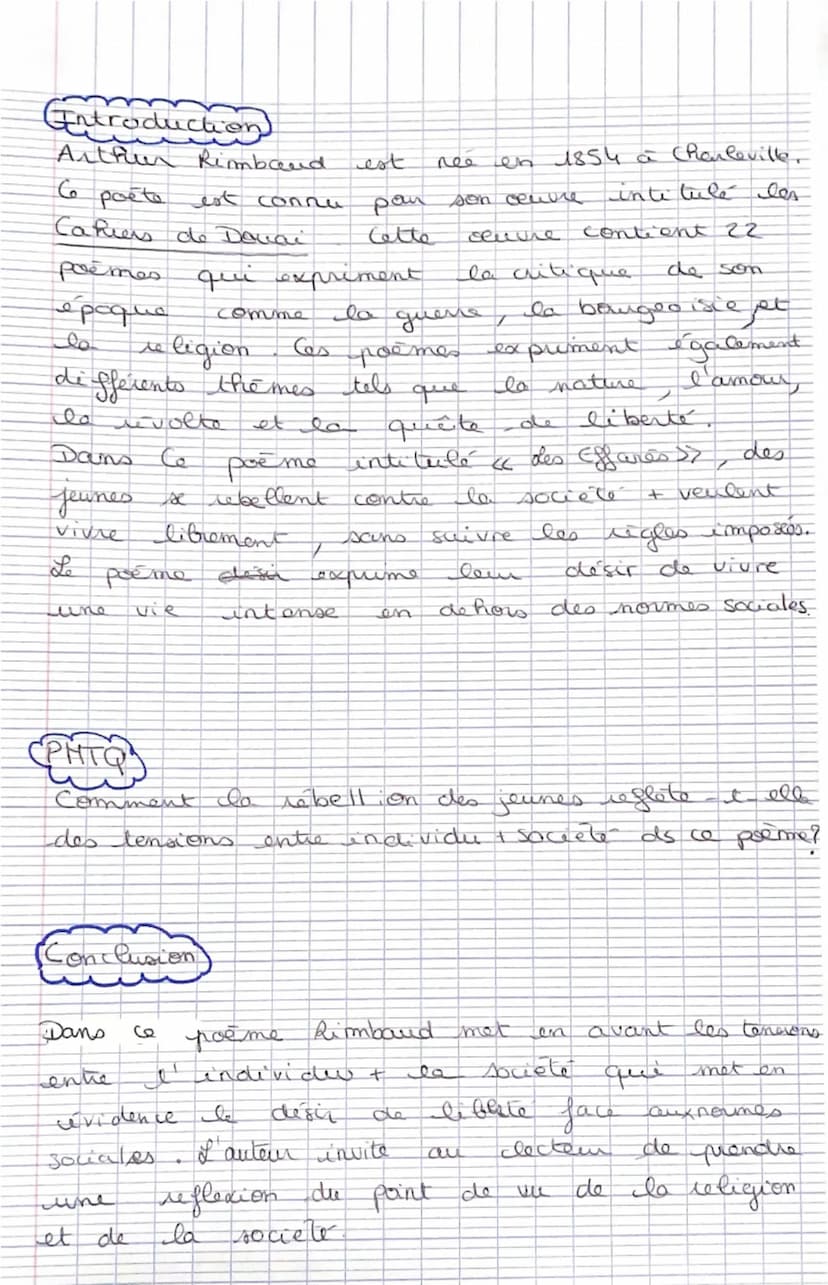 Introduction
Arthur Rimbaud est née en 1854 à Charleville.
Ce poète est connu par son oeuvre intitulé les
Cahiers de Douai Cette oeuvre contient 22
poèmes qui expriment la critique de son
époque comme la guerre, la bourgeoisie et
la religion. Ces poèmes expriment également
différents thèmes tels que la nature, l'amour,
la révolte et la quête de liberté.
Dans Ce poème intitulé « des Effarés », des
jeunes se rebellent contre la société + veulent
vivre librement, sans suivre les règles imposés.
Le poème desir exprime leur désir de vivre
une vie intense en dehors des normes sociales.
PMTQ
Comment la rébellion des jeunes reflète-t-elle
des tensions entre individu + société ds ce poème?
Conclusion
Dans ce poème Rimbaud met en avant les tensions
entre l'individu + la société qui met en
évidence le désir de liberté face aux normes
sociales. L'auteur invite au lecteur de prendre
une reflexion du point de vu de la religion
et de la société.